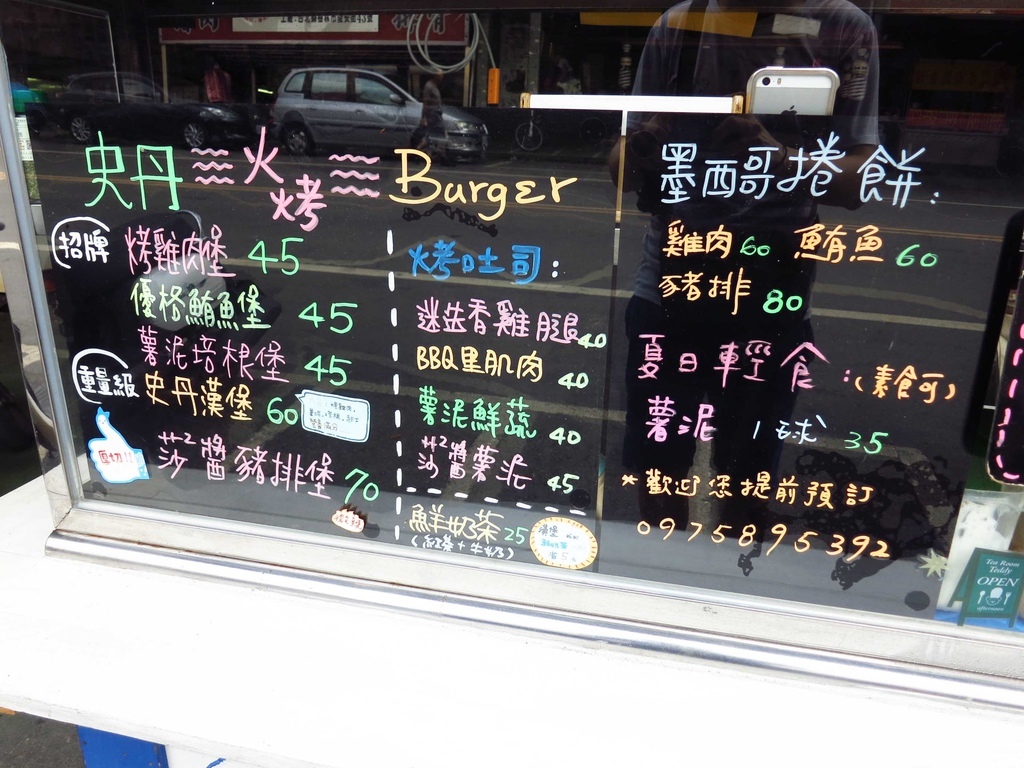 史丹 火烤 Burger
招牌 烤雞肉堡 45
優格鮪魚堡 45
薯泥培根堡 45
重量級 史丹漢堡 60
莎莎醬豬排堡 70
烤吐司:
迷迭香雞腿 40
BBQ里肌肉 40
薯泥鮮蔬 40
莎莎醬薯泥 45
鮮奶茶 25
(紅茶+牛奶)
墨西哥捲餅:
雞肉 60 鮪魚 60
豬排 80
夏日輕食:(素食可)
薯泥 1球 35
*歡迎您提前預訂
0975895392
Tea Room
Teddy
OPEN
afternoon